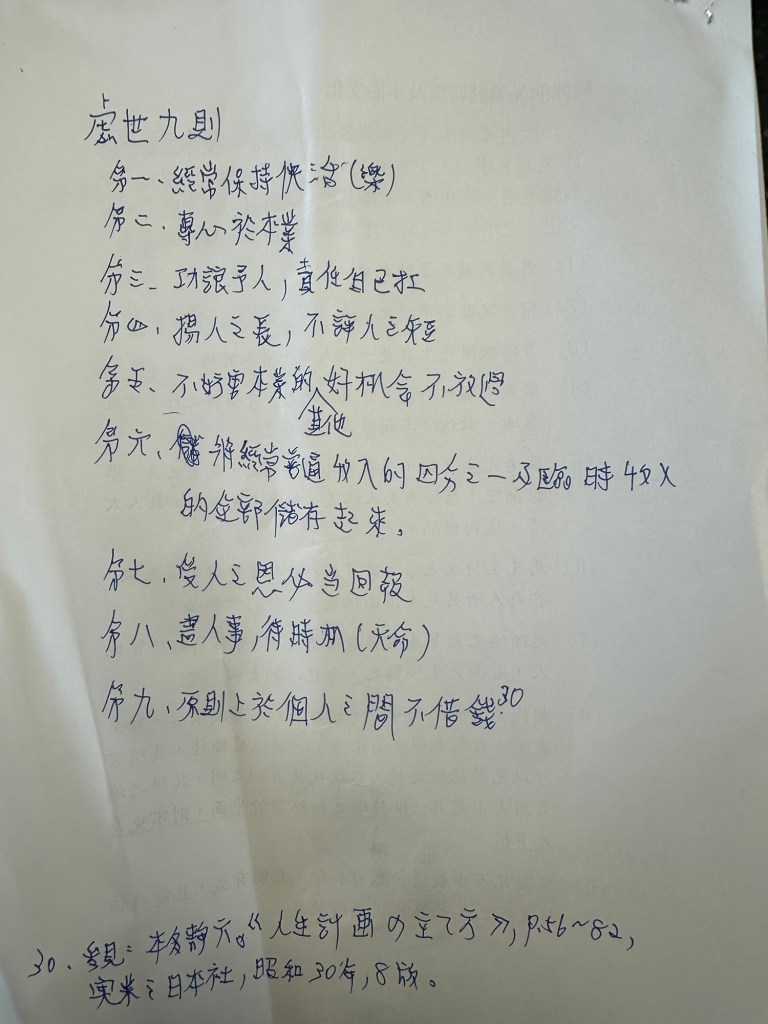 處世九則
第一、經常保持快活(樂)
第二、專心於本業
第三、功讓予人,責任自己扛
第四、揚人之長,不評人之短
第五、不妨害本業的其他好机会不放過
第六、將經常普通收入的四分之一及臨時收入
的全部儲存起來。
第七、受人之恩必当回報
第八、盡人事,待時机(天命)
第九、原則上於個人之間不借錢30
30. 參見:本多静六《人生計画の立て方》,P.56~82,
実業之日本社,昭和30年,8版。